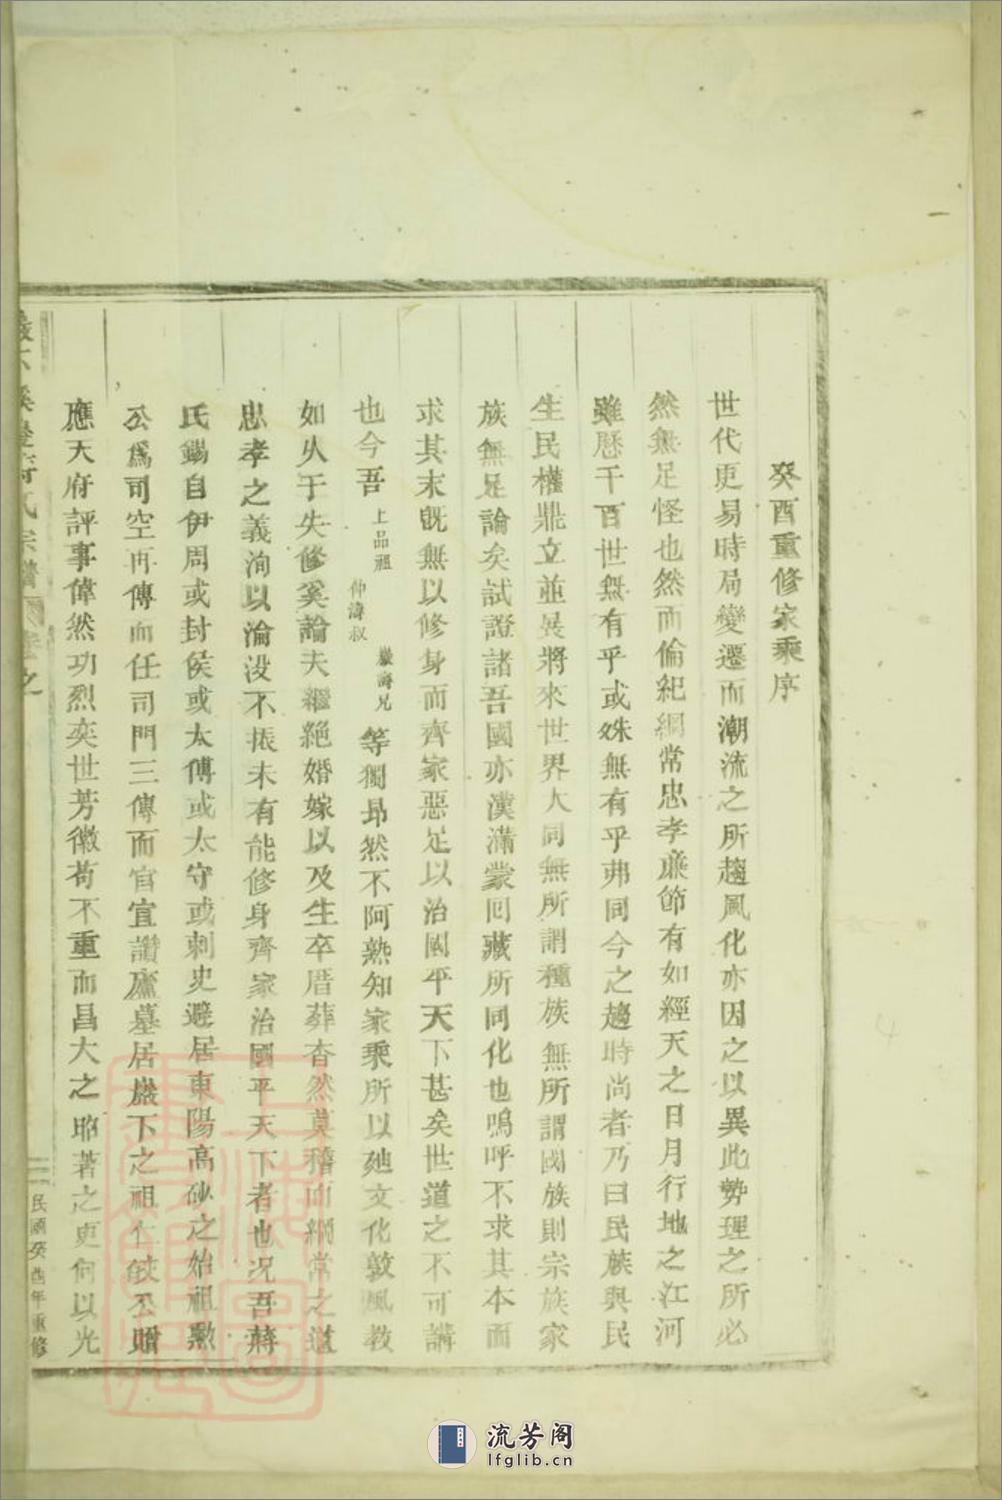 癸酉重修家乘序
世代更易時局變遷而潮流之所趨風化亦因之以異此勢理之所必
然無足怪也然而倫紀綱常忠孝廉節有如經天之日月行地之江河
雖歷千百世無有乎或姝無有乎弗同今之趨時尚者乃曰民族與民
生民權鼎立並長將來世界大同無所謂種族無所謂國族則宗族家
族無足論矣試證諸吾國亦漢滿蒙囘藏所同化也嗚呼不求其本而
求其末旣無以修身而齊家惡足以治國平天下甚矣世道之不可講
也今吾上品祖仲濤叔嚴濤兄等獨昻然不阿熟知家乘所以勉文化敦風教
如久于失修奚論夫繼絶婚嫁以及生卒厝葬杳然莫稽而綱常之道
忠孝之義洵以淪没不振未有能修身齊家治國平天下者也况吾蔣
氏錫自伊周或封侯或太傅或太守或刺史避居東陽高砂之始祖勲
公爲司空再傳而任司門三傳而官宜讚廬墓居巖下之祖仁公贈
應天府評事偉然功烈奕世芳徽苟不重而昌大之昭著之更何以光
氏宗譜 卷之
民國癸酉年重修
流芳阁
lfglib.cn